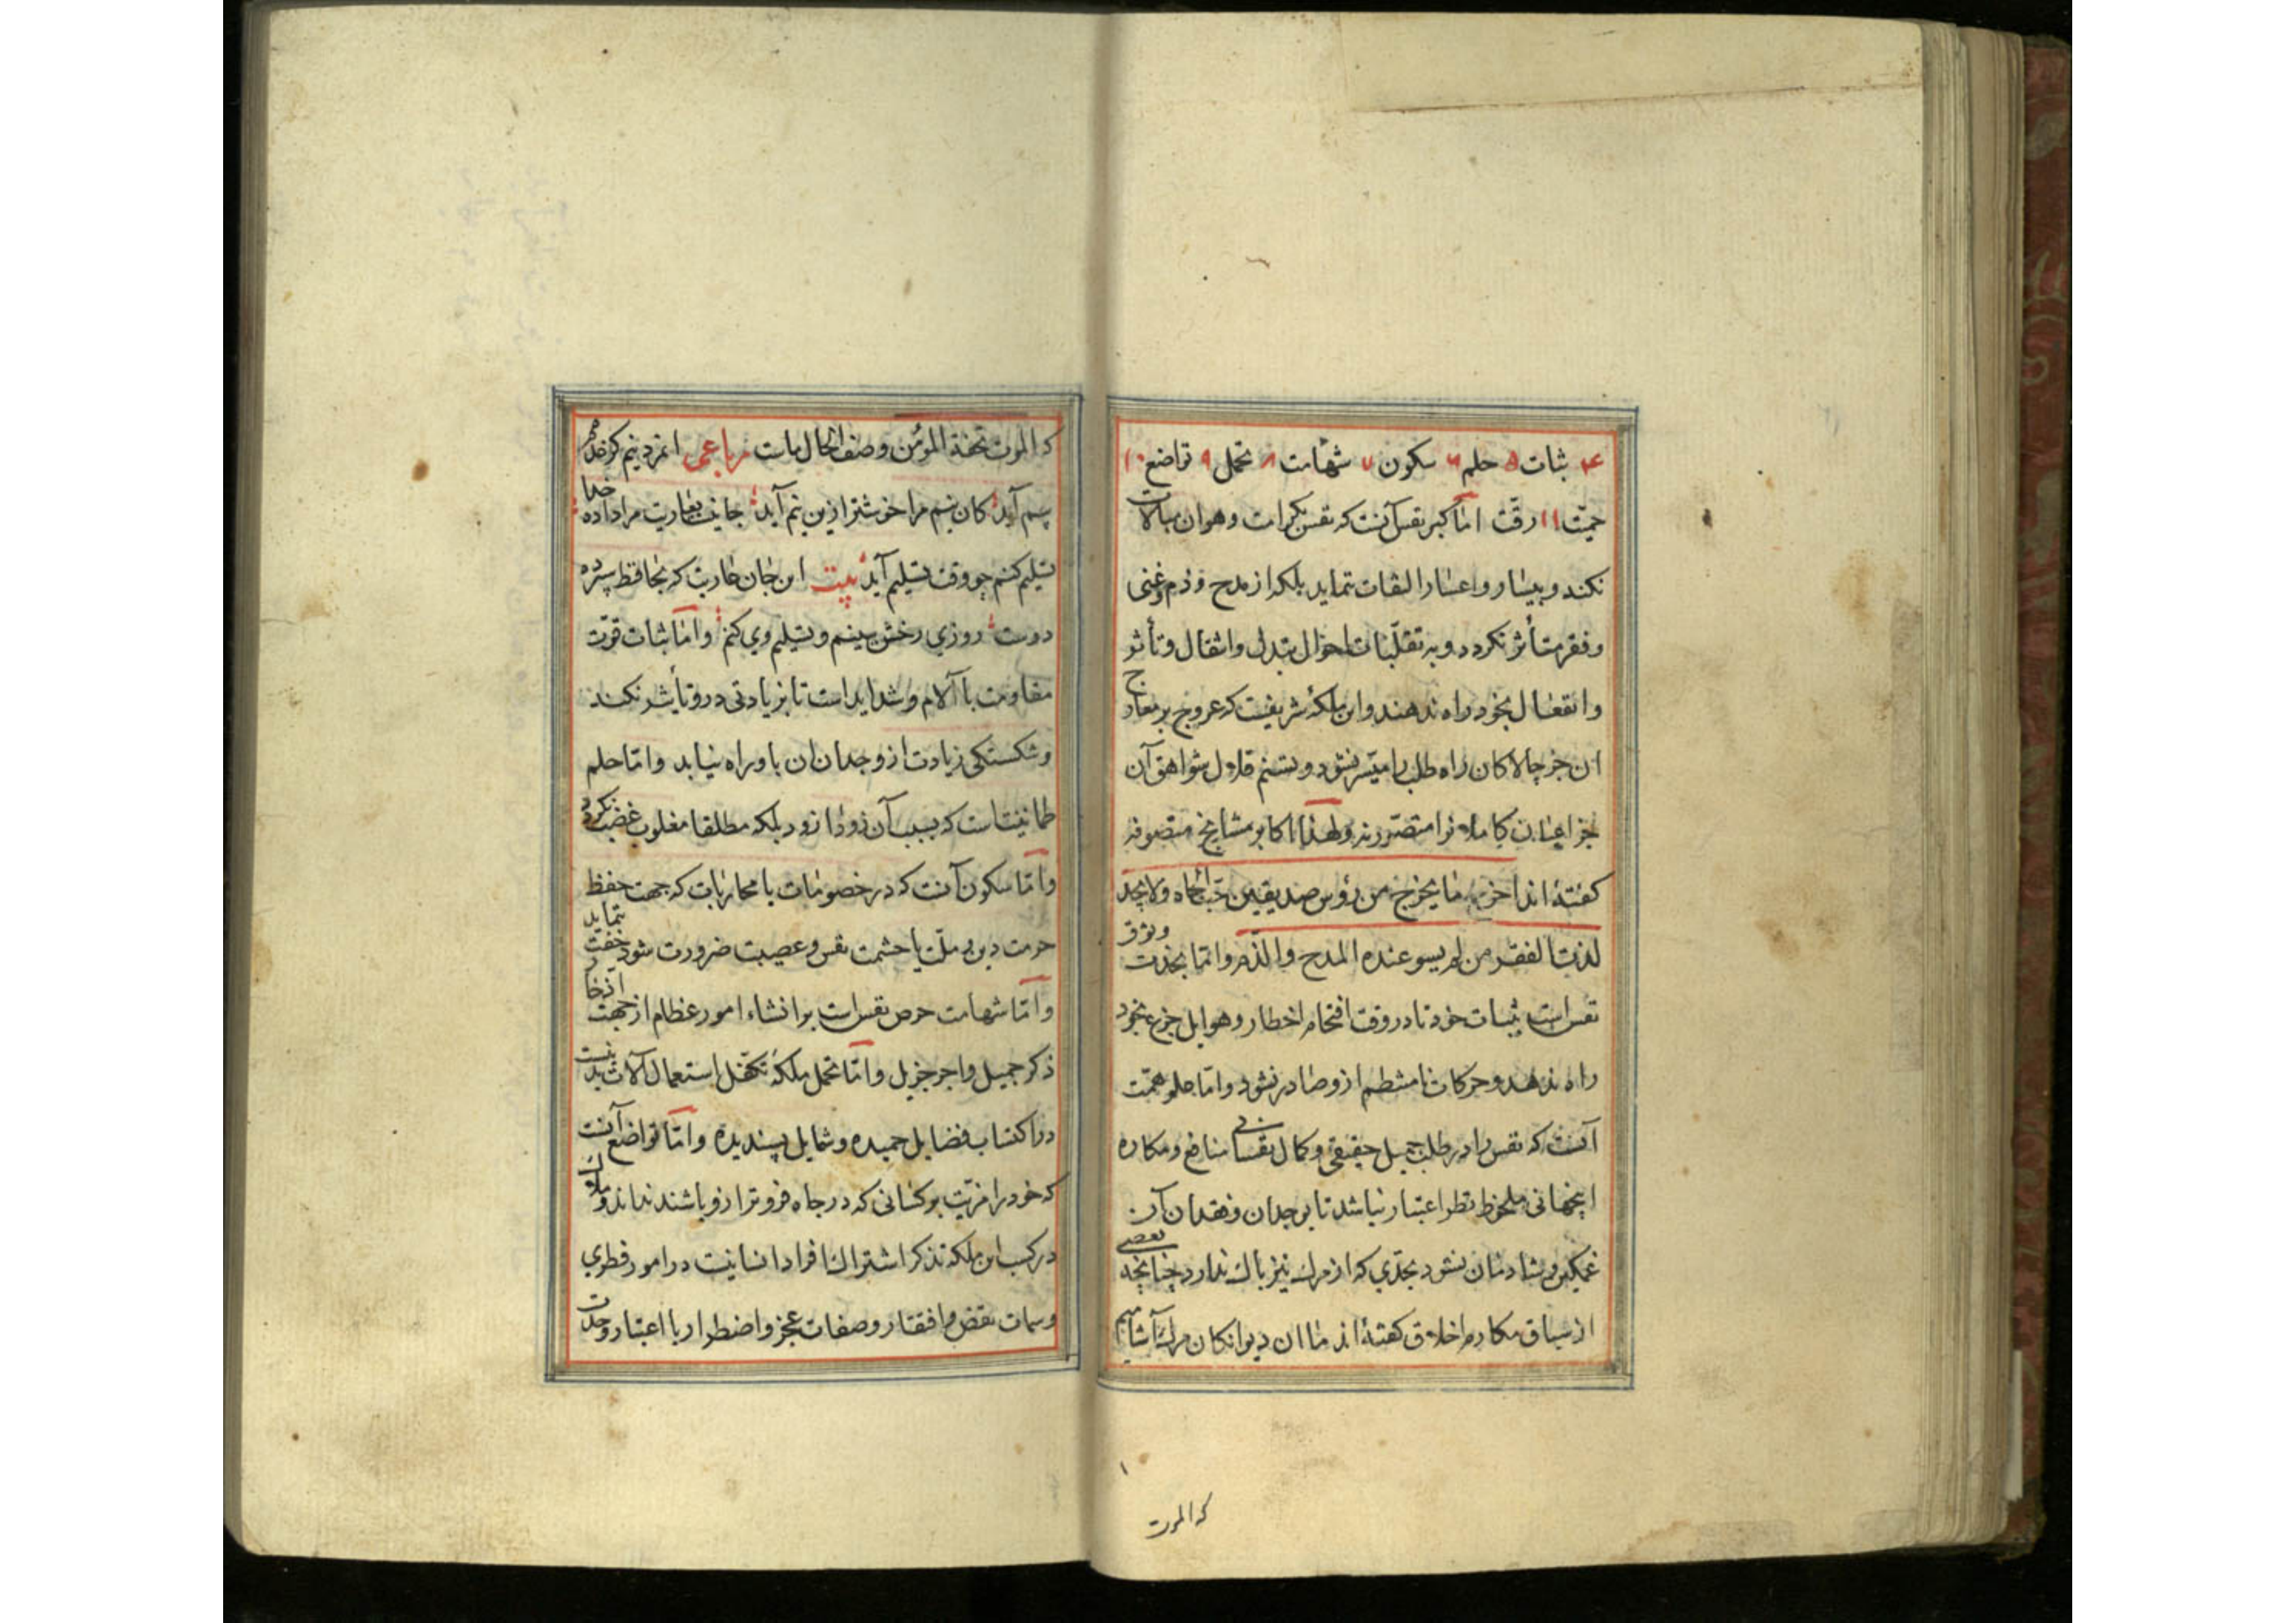 ۴ ثبات ۵ حلم ۶ سکون ۷ شهامت ۸ تحمل ۹ تواضع ۱۰
حمیّت ۱۱ رقّت امّا کبر نفس آنست که نفس بکرامت و هوان مبالات
نکند و بیسار و اعسار التفات ننماید بلکه از مدح و ذم و غنی
و فقر متأثر نکردد و به تقلّبات احوال تبدل و انتقال و تأثر
و انفعال بخود راه ندهند و این ملکهٔ شریفیست که عروج بر معارج
ان جز چالاکان راه طلب را میّسر نشود و تسنم قلال شواهق آن
جز اعیان کاملانرا متصّور نه و لهذا اکابر مشایخ متصوفه
کفتهٔ اند اخر ما یخرج من رؤس صدیقین حبّ الجاه و لا یجد
لذت الفقر من لم یسو عنده المدح و الذّم و امّا نجدت وثوق
نفس است بثبات خود تا در وقت اقتحام اخطار و هوایل جزع بخود
راه ندهد و حرکات نامنتظم ازو صادر نشود و امّا علو همّت
آنست که نفس را در طلب جمیل حقیقی و کمال نفسانی منافع و مکاره
اینجهانی ملحوظ نظر اعتبار نباشد تا بوجدان و فقدان آن
غمکین و شادمان نشود بحدّی که از مرك نیز باك ندارد چنانچه بعضی
از سباق مکارم اخلاق کفتهٔ اند ما ان دیوانکان مرك آشامیم
که الموت
که الموت تحفة المؤمن وصف الحال ماست رباعی
بیم آید کان نیم مرا خوشتر ازین نیم آید جانیست بعاریت مرا داده خدا
تسلیم کنم چو وقت تسلیم آید بیت این جان عاریت که بحافظ سپرده
دوست روزی رخش ببینم و تسلیم وی کنم و امّا ثبات قوّت
مقاومت با آلام و شداید است تا بزیادتی درو تأثیر نکند
و شکستکی زیادت از وجدان ان باو راه نیابد و امّا حلم
طمانینت است که بسبب آن زود از و د بلکه مطلقا مغلوب غضب نکردد
و امّا سکون آنست که در خصومات یا محاربات که جهت حفظ
حرمت دین یا ملّت یا حشمت نفس و عصبیت ضرورت شود خفت ننماید
و امّا شهامت حرص نفس است بر انشاء امور عظام از جهت اذخار
ذکر جمیل و اجر جزیل و امّا تحمل ملکهٔ تکفّل استعمال آلات بدنیست
در اکتساب فضایل حمیده و شمایل پسندیده و امّا تواضع آنست
که خود را مزیّت بر کسانی که در جاه فروتر ازو باشند نداند و ملاك
در کسب این ملکه تذکر اشتراك افراد انسانیت در امور فطری
و سمات نقص و افتقار و صفات عجز و اضطرار با اعتبار وحدت